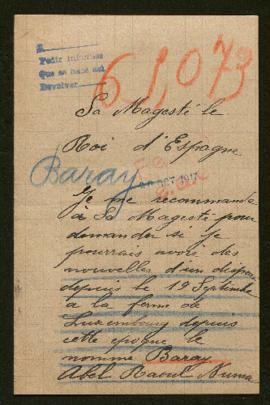 Pedir informes
Devolver
61,073
Sa Magesté le
Roi d'Espagne
Baray
OCT. 1917
Je me recommande
à Sa Magesté pour
demander si je
pourrais avoir des
nouvelles d'un disparu
depuis le 19 Septembre
a la ferme de
Luxembourg depuis
cette époque le
nommé Baray
Abel Raoul Numa